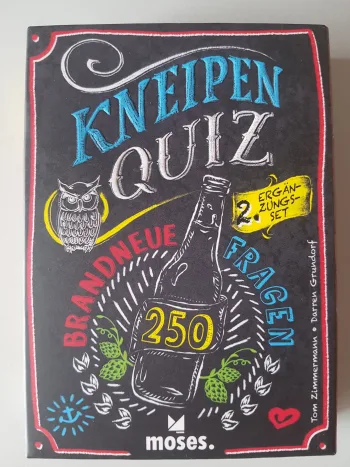 KNEIPEN
QUIZ
2. ERGÄN-
ZUNGS-
SET
BRANDNEUE
FRAGEN
250
Tom Zimmermann • Darren Grundorf
moses.